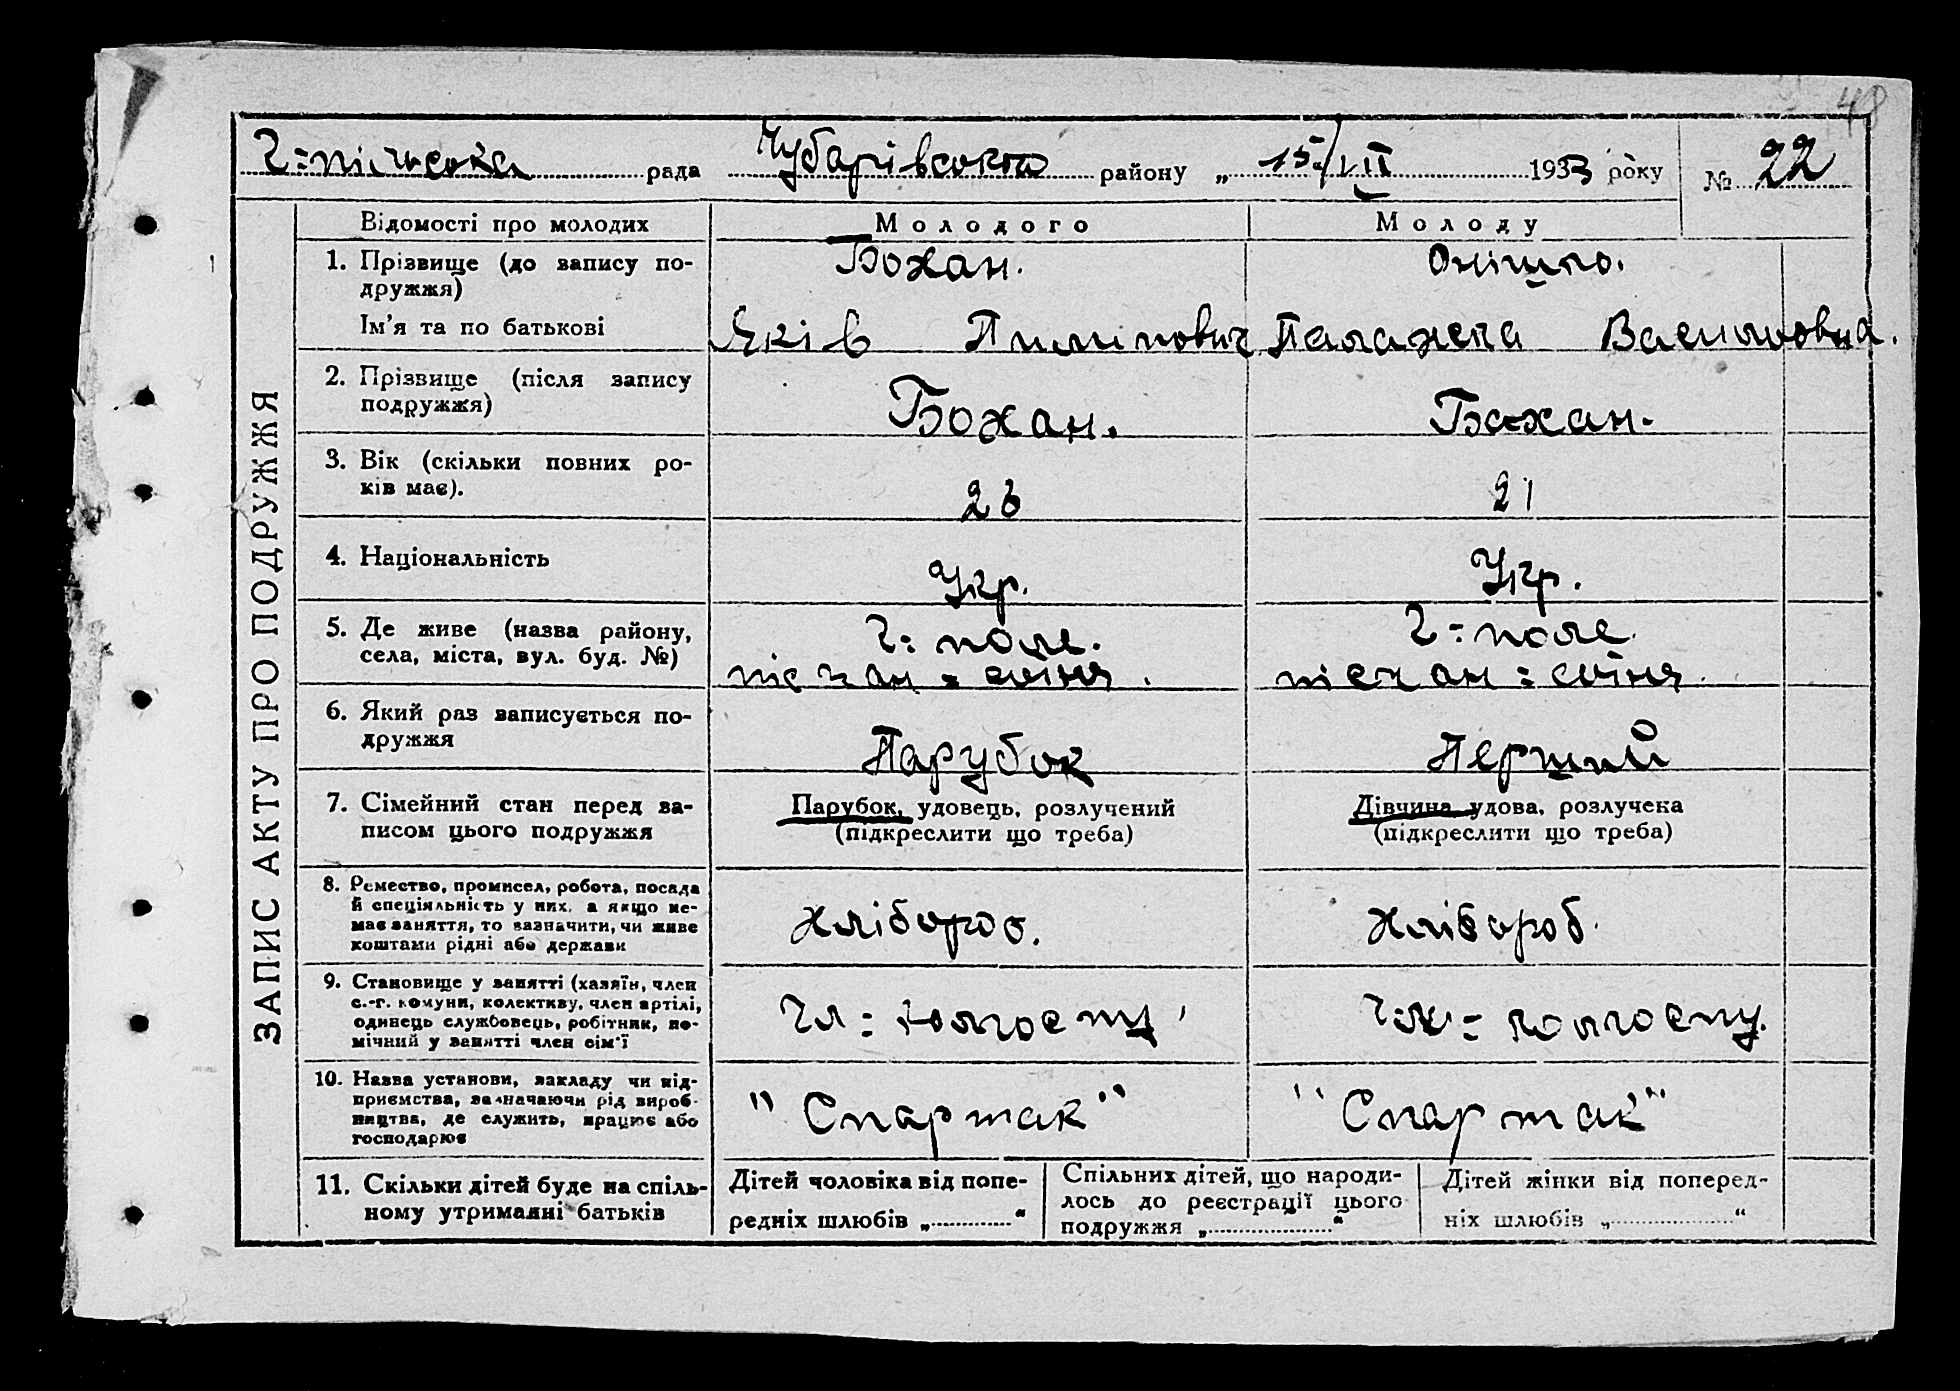 48
Г=пільська рада Чубарівського району „15/VII 1933 року № 22
ЗАПИС АКТУ ПРО ПОДРУЖЖЯ
Відомості про молодих Молодого Молоду
1. Прізвище (до запису по-
дружжя) Бохан. Онішко.
Ім'я та по батькові Яків Пилипович Палажка Василовна.
2. Прізвище (після запису
подружжя) Бохан. Бохан.
3. Вік (скільки повних ро-
ків має). 23 21
4. Національність Укр. Укр.
5. Де живе (назва району, Г=поле. Г=поле.
села, міста, вул. буд. №)
6. Який раз записується по-
дружжя Парубок Перший
7. Сімейний стан перед за- Парубок, удовець, розлучений Дівчина удова, розлучена
писом цього подружжя (підкреслити що треба) (підкреслити що треба)
8. Ремество, промисел, робота, посада
й спеціяльність у них, а якщо не-
має заняття, то зазначити, чи живе
коштами рідні або держави Хлібороб. Хлібороб.
9. Становище у занятті (хазяїн, член
с.-г. комуни, колективу, член артілі,
одинець службовець, робітник, по-
мічний у занятті член сім'ї Чл=колгоспу Чл=колгоспу.
10. Назва установи, закладу чи під-
приємства, зазначаючи рід вироб-
ництва, де служить, працює або
господарює "Спартак" "Спартак"
11. Скільки дітей буде на спіль-
ному утриманні батьків
Дітей чоловіка від попе-
редніх шлюбів „ “
Спільних дітей, що народи-
лось до реєстрації цього
подружжя „ “
Дітей жінки від поперед-
ніх шлюбів „ “